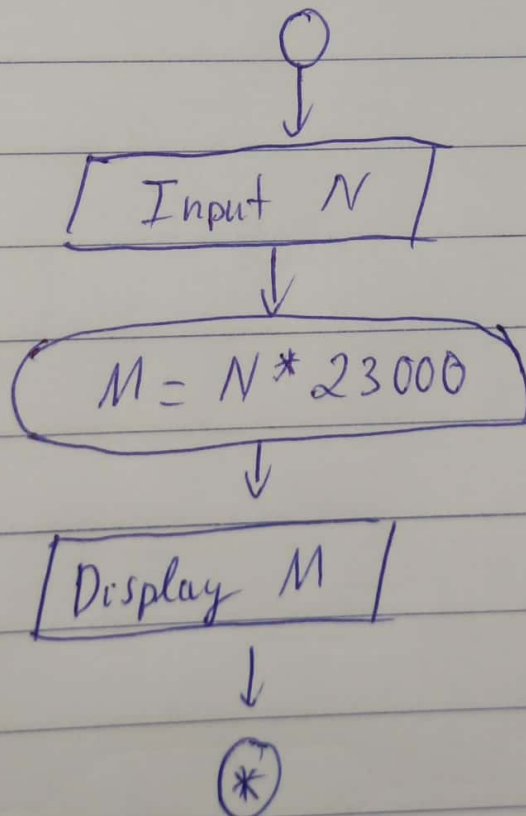 Input N
M = N * 23000
Display M
*